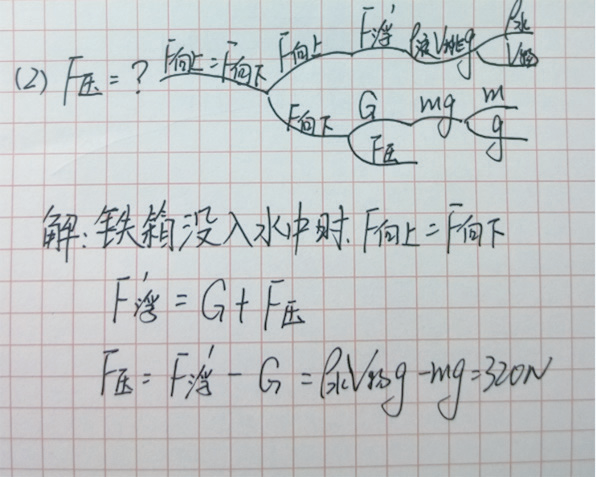 (2) F压=? F向上=F向下 F向上 F浮' ρ液V排g ρ水
V物
F向下 G mg m
g
F压
解:铁箱没入水中时,F向上=F向下
F浮'=G+F压
F压=F浮'-G=ρ水V物g-mg=320N